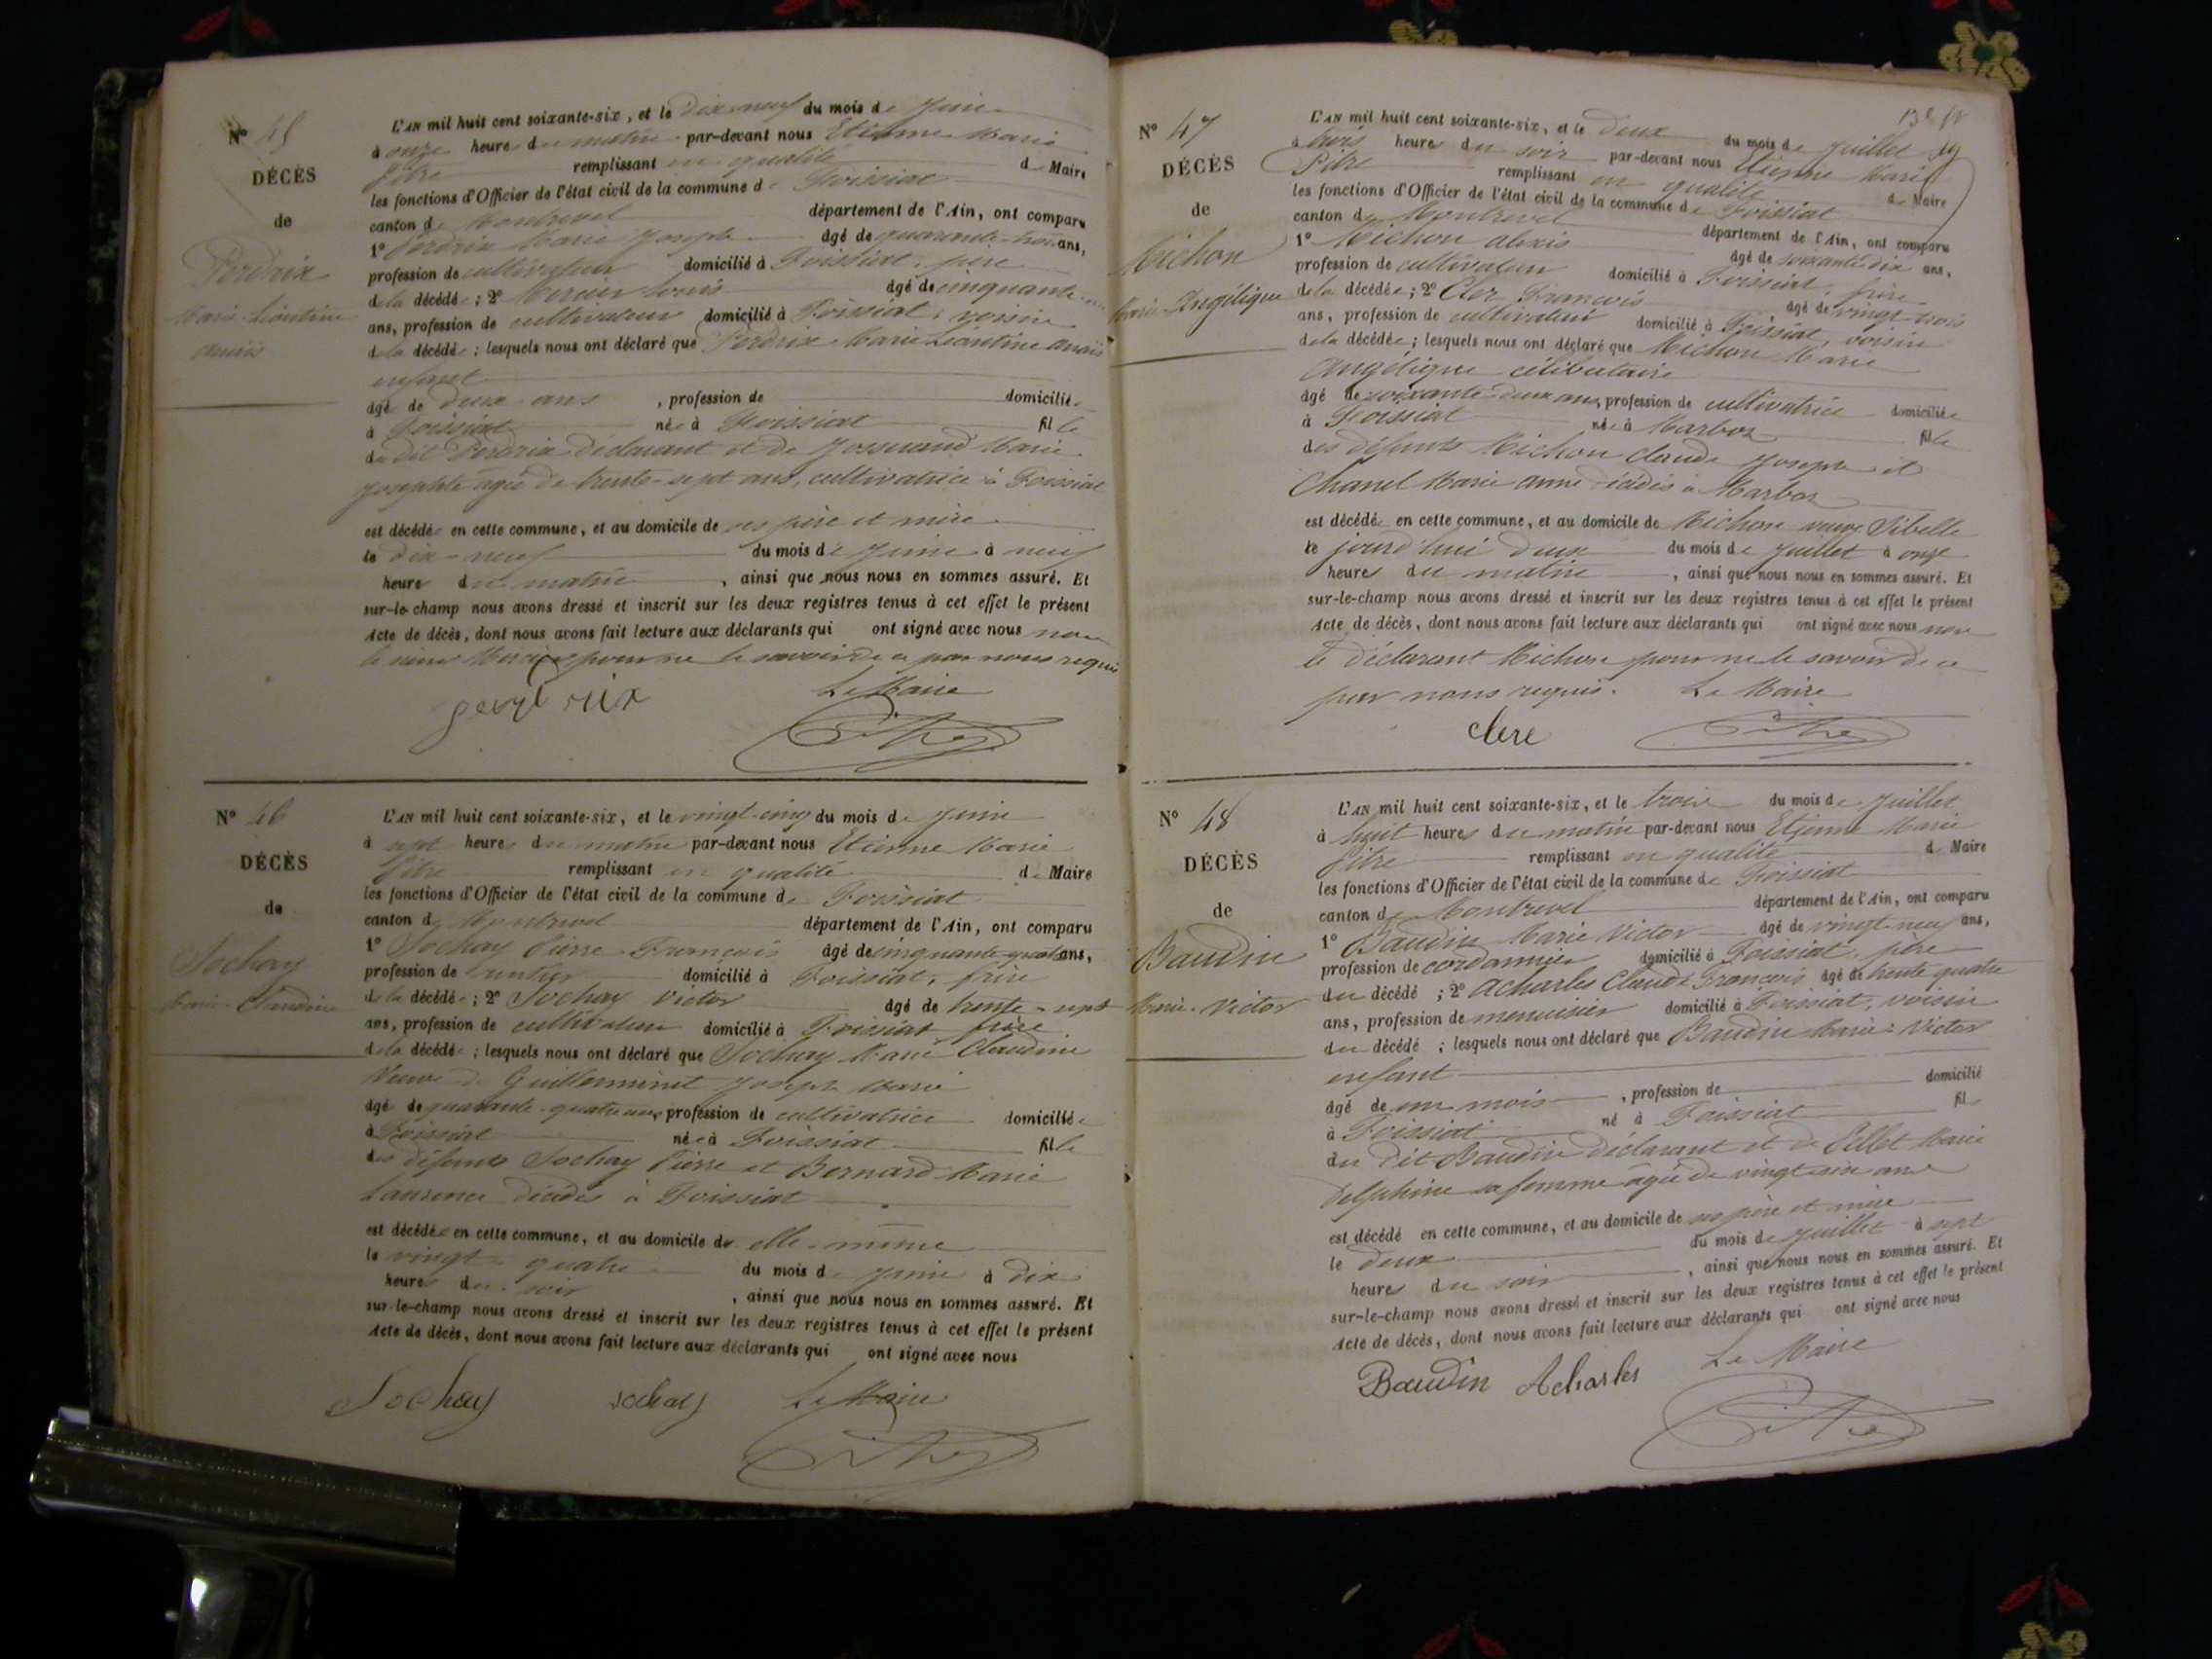 N° 45
DÉCÈS
de
Perdrix
Marie-Léontine
Anaïs
L'AN mil huit cent soixante-six, et le dix-neuf du mois de Juin
à onze heure du matin par-devant nous Etienne Marie
Pitre remplissant en qualité de Maire
les fonctions d'Officier de l'état civil de la commune de Foissiat
canton de Montrevel département de l'Ain, ont comparu
1° Perdrix Marie Joseph âgé de quarante-trois ans,
profession de cultivateur domicilié à Foissiat, père
de la décédée ; 2° Mercier Louis âgé de cinquante
ans, profession de cultivateur domicilié à Foissiat, voisin
de la décédée ; lesquels nous ont déclaré que Perdrix Marie Léontine Anaïs
enfant
âgé de deux ans , profession de domiciliée
à Foissiat née à Foissiat fille
du dit Perdrix déclarant et de Josserand Marie
Josephte âgée de trente-sept ans, cultivatrice à Foissiat
est décédée en cette commune, et au domicile de ses père et mère
le dix-neuf du mois de Juin à neuf
heure du matin , ainsi que nous nous en sommes assuré. Et
sur-le-champ nous avons dressé et inscrit sur les deux registres tenus à cet effet le présent
Acte de décès, dont nous avons fait lecture aux déclarants qui ont signé avec nous non
le sieur Mercier pour ne le savoir de ce par nous requis
perdrix Le Maire
Pitre
N° 46
DÉCÈS
de
Sochay
Marie-Claudine
L'AN mil huit cent soixante-six, et le vingt-cinq du mois de Juin
à sept heures du matin par-devant nous Etienne Marie
Pitre remplissant en qualité de Maire
les fonctions d'Officier de l'état civil de la commune de Foissiat
canton de Montrevel département de l'Ain, ont comparu
1° Sochay Pierre François âgé de cinquante-quatre ans,
profession de rentier domicilié à Foissiat, frère
de la décédée ; 2° Sochay Victor âgé de trente-sept
ans, profession de cultivateur domicilié à Foissiat frère
de la décédée ; lesquels nous ont déclaré que Sochay Marie Claudine
Veuve de Guillerminet Joseph Marie
âgé de quarante-quatre ans, profession de cultivatrice domiciliée
à Foissiat née à Foissiat fille
des défunts Sochay Pierre et Bernard Marie
Laurence décédés à Foissiat
est décédée en cette commune, et au domicile de elle-même
le vingt-quatre du mois de Juin à dix
heures du soir , ainsi que nous nous en sommes assuré. Et
sur-le-champ nous avons dressé et inscrit sur les deux registres tenus à cet effet le présent
Acte de décès, dont nous avons fait lecture aux déclarants qui ont signé avec nous
Sochay sochay Le Maire
Pitre
N° 47
DÉCÈS
de
Michon
Marie-Angélique
L'AN mil huit cent soixante-six, et le deux du mois de Juillet
à trois heure du soir par-devant nous Etienne Marie
Pitre remplissant en qualité de Maire
les fonctions d'Officier de l'état civil de la commune de Foissiat
canton de Montrevel département de l'Ain, ont comparu
1° Michon Alexis âgé de soixante-dix ans,
profession de cultivateur domicilié à Foissiat, frère
de la décédée ; 2° Clerc François âgé de vingt-trois
ans, profession de cultivateur domicilié à Foissiat, voisin
de la décédée ; lesquels nous ont déclaré que Michon Marie
Angélique célibataire
âgé de soixante-deux ans, profession de cultivatrice domiciliée
à Foissiat née à Marboz fille
des défunts Michon Claude Joseph et
Chanel Marie Anne décédés à Marboz
est décédée en cette commune, et au domicile de Michon veuve Sibelle
le jourd'hui deux du mois de Juillet à onze
heures du matin , ainsi que nous nous en sommes assuré. Et
sur-le-champ nous avons dressé et inscrit sur les deux registres tenus à cet effet le présent
Acte de décès, dont nous avons fait lecture aux déclarants qui ont signé avec nous non
le déclarant Michon pour ne le savoir de ce
par nous requis. Le Maire
clerc Pitre
N° 48
DÉCÈS
de
Baudin
Marie-Victor
L'AN mil huit cent soixante-six, et le trois du mois de Juillet
à huit heures du matin par-devant nous Etienne Marie
Pitre remplissant en qualité de Maire
les fonctions d'Officier de l'état civil de la commune de Foissiat
canton de Montrevel département de l'Ain, ont comparu
1° Baudin Marie Victor âgé de vingt-neuf ans,
profession de cordonnier domicilié à Foissiat, père
du décédé ; 2° Acharles Claude François âgé de trente quatre
ans, profession de menuisier domicilié à Foissiat, voisin
du décédé ; lesquels nous ont déclaré que Baudin Marie-Victor
enfant
âgé de un mois , profession de domicilié
à Foissiat né à Foissiat fils
du dit Baudin déclarant et de Marie
Delphine sa femme âgée de vingt-six ans
est décédé en cette commune, et au domicile de ses père et mère
le deux du mois de Juillet à sept
heures du soir , ainsi que nous nous en sommes assuré. Et
sur-le-champ nous avons dressé et inscrit sur les deux registres tenus à cet effet le présent
Acte de décès, dont nous avons fait lecture aux déclarants qui ont signé avec nous
Baudin Acharles Le Maire
Pitre